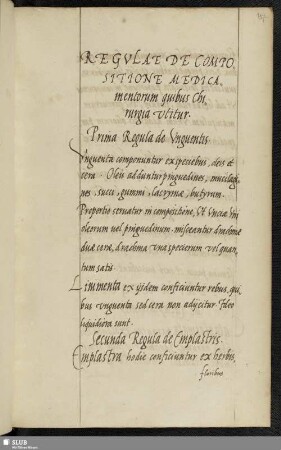 REGVLAE DE COMPO,
SITIONE MEDICA,
mentorum quibus Chi,
rurgia Vtitur.
Prima Regula de Vnguentis
Vnguenta componuntur ex speciebus, oleo et
cera. Oleis adduntur pinguedines, mucilagi,
nes, succi, gummi, lacrymæ, butyrum.
Proportio seruatur in compositione, Vt Vnciæ Vni
oleorum uel pinguedinum misceantur drachmæ
duæ ceræ, drachma una specierum vel quan,
tum satis.
Linimenta ex ijsdem conficiuntur rebus, qui,
bus vnguenta sed cera non adijcitur Ideo
liquidiora sunt.
Secunda Regula de Emplastris.
Emplastra hodie conficiuntur ex herbis,
floribus
SLUB